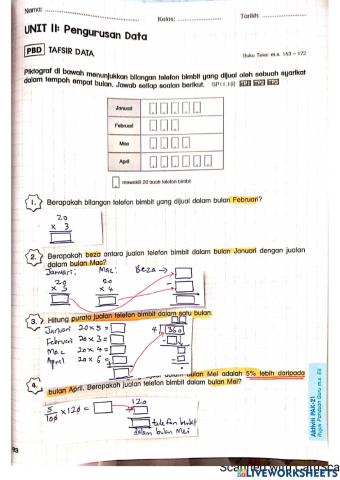 Nama:
Kelas:
Tarikh:
UNIT 11: Pengurusan Data
PBD TAFSIR DATA
Buku Teks: m.s. 163 – 172
Piktograf di bawah menunjukkan bilangan telefon bimbit yang dijual oleh sebuah syarikat
dalam tempoh empat bulan. Jawab setiap soalan berikut. TP1 TP2 TP3
Januari
Februari
Mac
April
mewakili 20 buah telefon bimbit
1. Berapakah bilangan telefon bimbit yang dijual dalam bulan Februari?
20
× 3
2. Berapakah beza antara jualan telefon bimbit dalam bulan Januari dengan jualan
dalam bulan Mac?
Januari: Mac: Beza →
20
× 4
3. Hitung purata jualan telefon bimbit dalam satu bulan.
Januari 20 × 5 =
Februari 20 × 3 =
Mac 20 × 4 =
April 20 × 6 =
4 360
4. bulan Mei adalah 5% lebih daripada
bulan April. Berapakah jualan telefon bimbit dalam bulan Mei?
5/100 × 120 =
120
+
telefon bimbit
dalam bulan Mei
Aktiviti PAK-21
93
LIVEWORKSHEETS